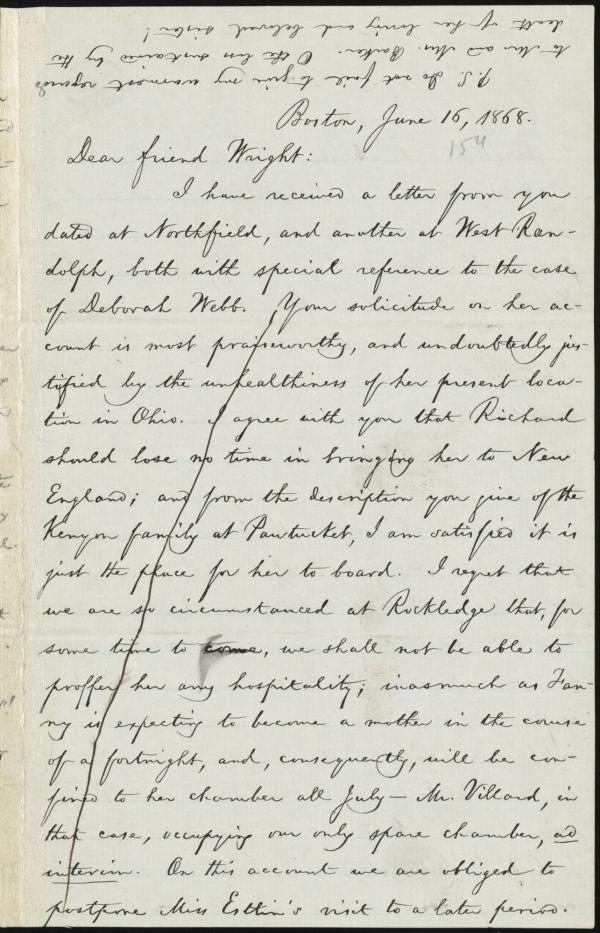 P.S. Do not fail to give my warmest regards
to Mr. and Mrs. Barker. O the loss sustained by the
death of her loving and beloved sister!
Boston, June 16, 1868.
154
Dear friend Wright:
I have received a letter from you
dated at Northfield, and another at West Ran-
dolph, both with special reference to the case
of Deborah Webb. Your solicitude on her ac-
count is most praiseworthy, and undoubtedly jus-
tified by the unhealthiness of her present loca-
tion in Ohio. I agree with you that Richard
should lose no time in bringing her to New
England; and from the description you give of the
Kenyon family at Pawtucket, I am satisfied it is
just the place for her to board. I regret that
we are so circumstanced at Rockledge that, for
some time to come, we shall not be able to
proffer her any hospitality; inasmuch as Fan-
ny is expecting to become a mother in the course
of a fortnight, and, consequently, will be con-
fined to her chamber all July — Mr. Villard, in
that case, occupying our only spare chamber, ad
interim. On this account we are obliged to
postpone Miss Estlin's visit to a later period.